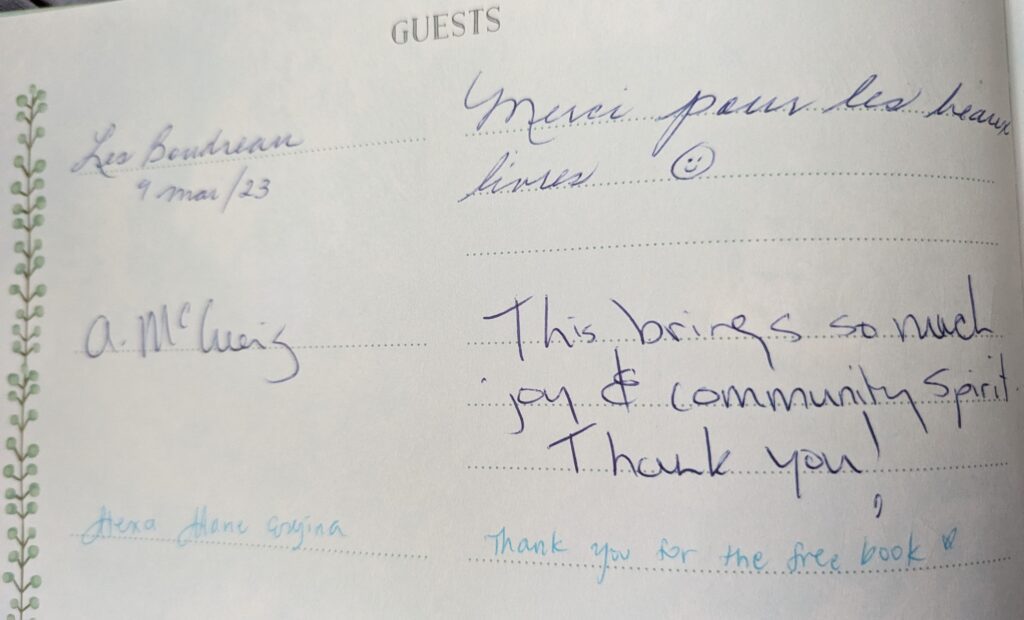 GUESTS
Les Boudreau
9 mar/23
Merci pour les beaux
livres ☺
A. McCuaig
This brings so much
joy & community Spirit.
Thank you!
Thank you for the free book